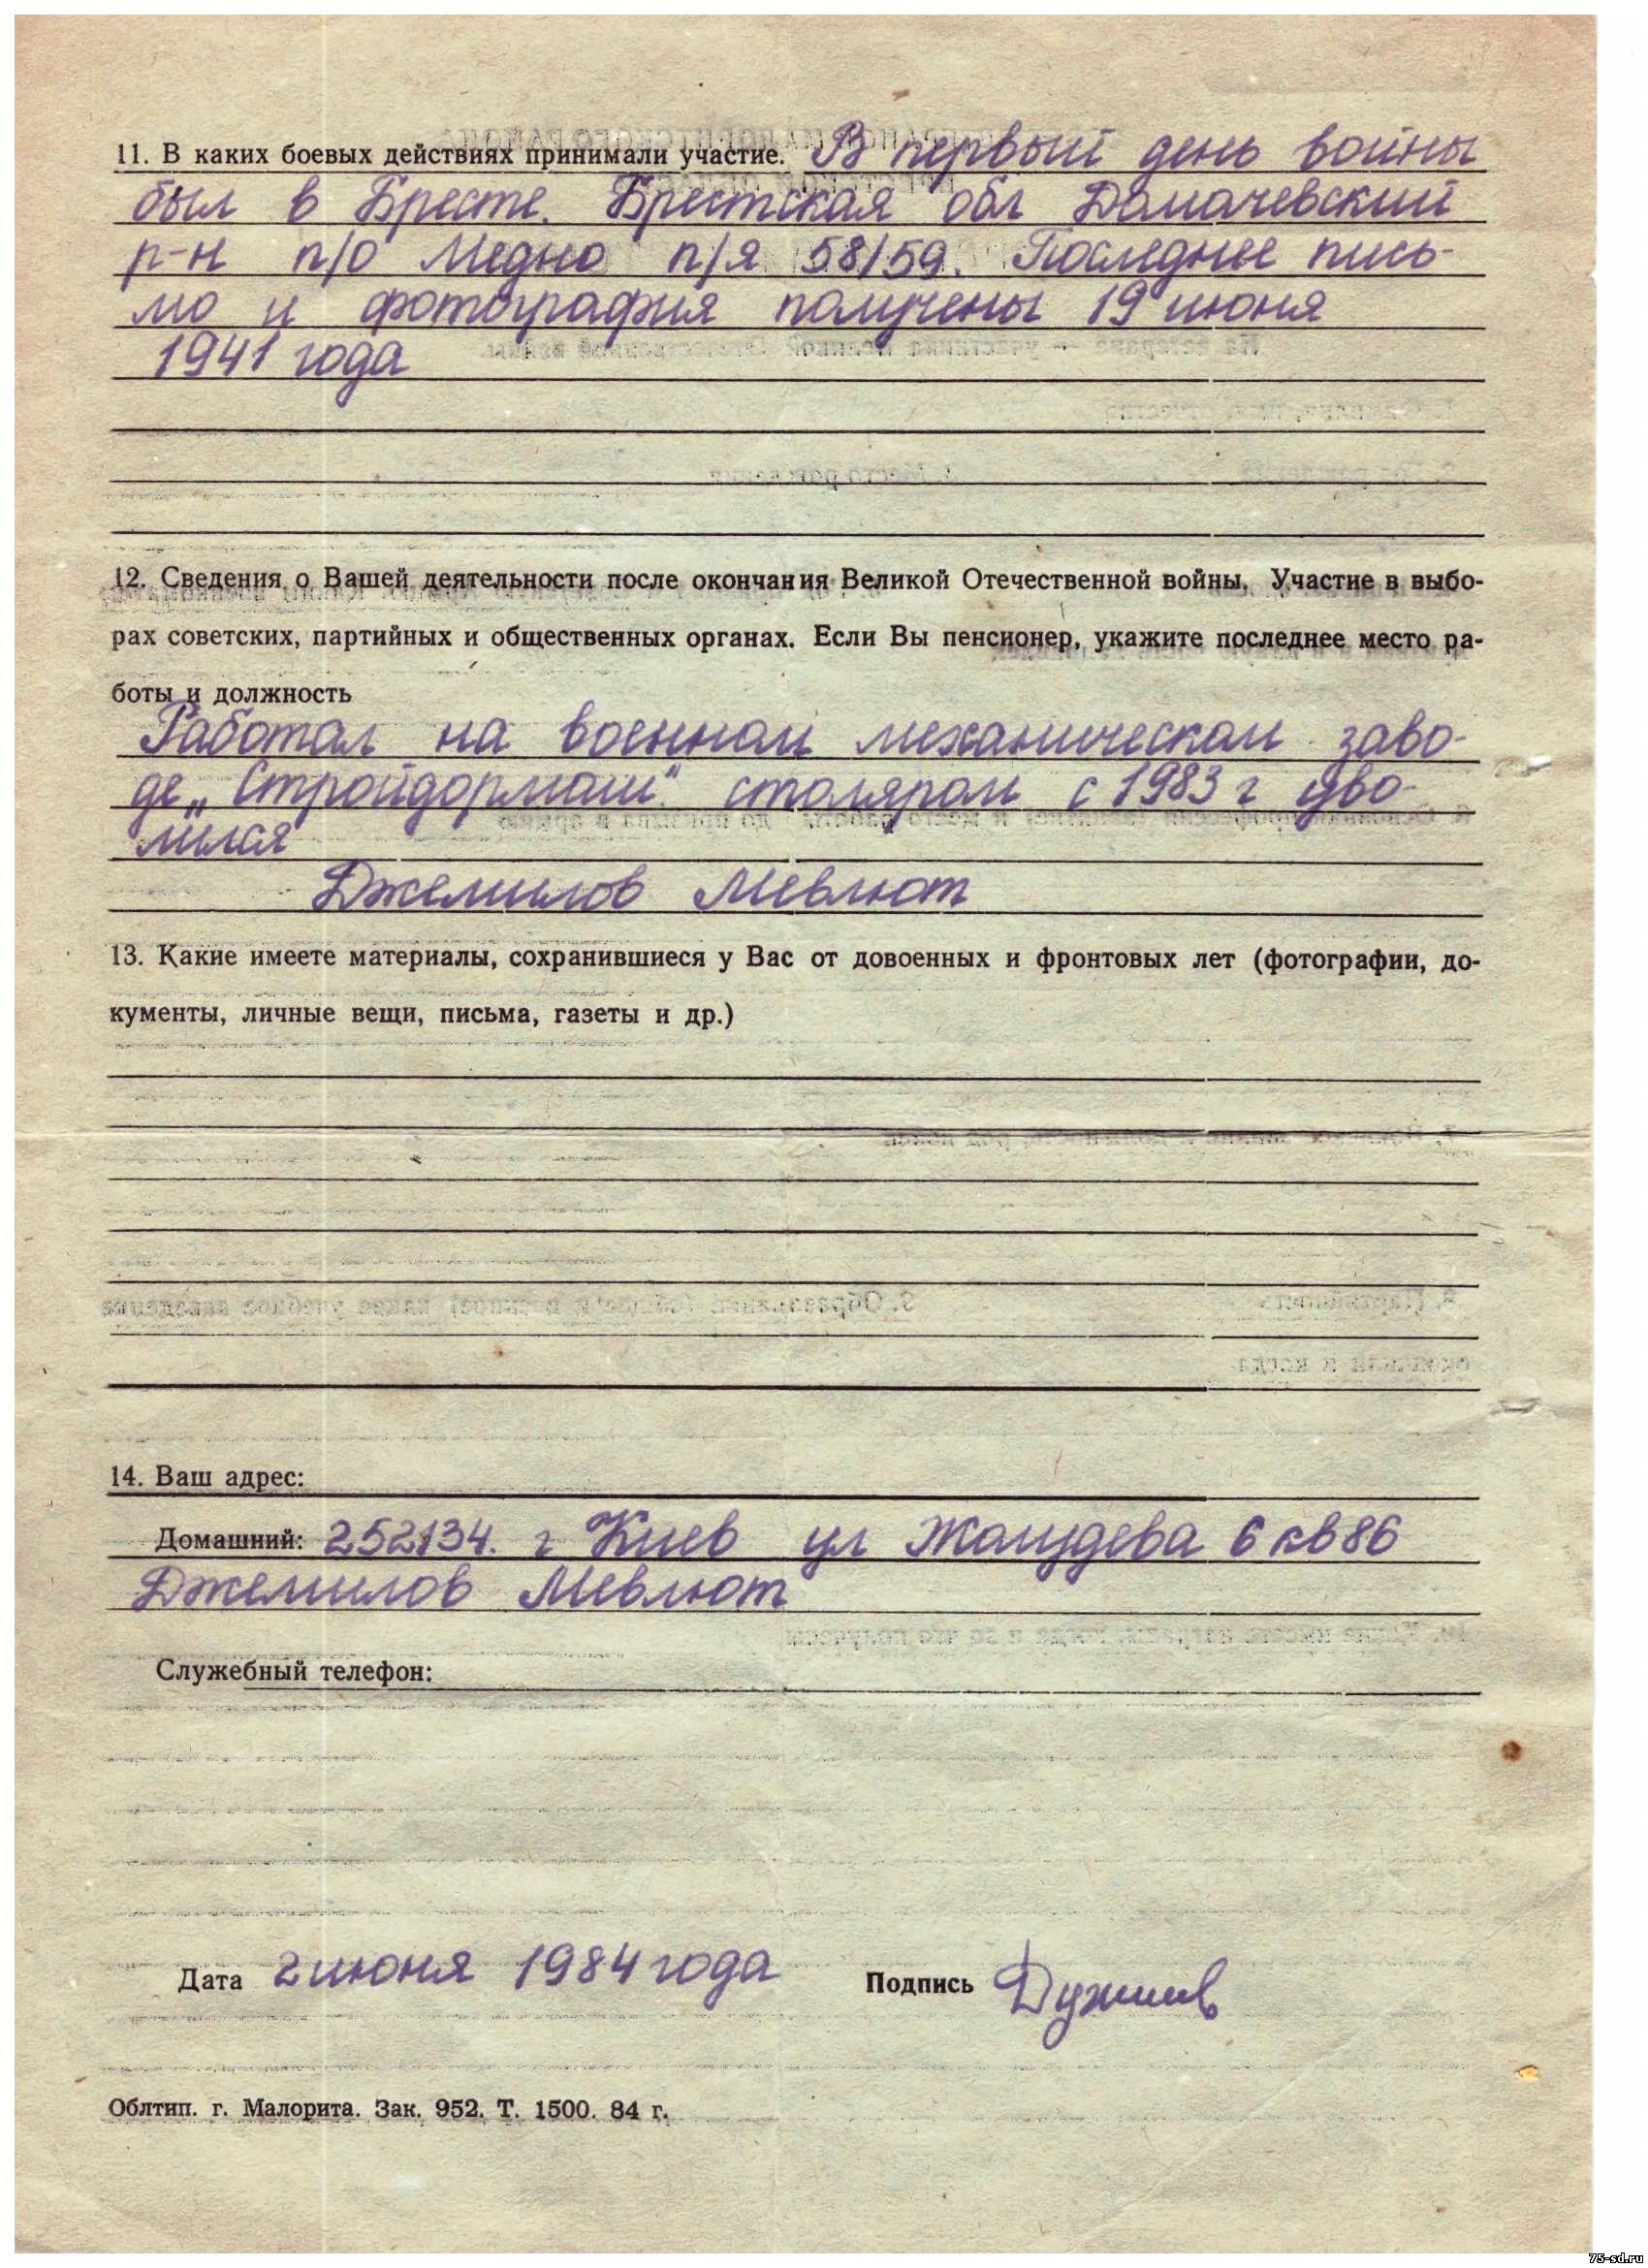 11. В каких боевых действиях принимали участие. В первый день войны
был в Бресте. Брестская обл Домачевский
р-н п/о Медно п/я 58/59. Последнее пись-
мо и фотография получены 19 июня
1941 года
12. Сведения о Вашей деятельности после окончания Великой Отечественной войны. Участие в выбо-
рах советских, партийных и общественных органах. Если Вы пенсионер, укажите последнее место ра-
боты и должность
Работал на военном механическом заво-
де „Стройдормаш" столяром с 1983 г уво-
лился
Джемилов Мевлют
13. Какие имеете материалы, сохранившиеся у Вас от довоенных и фронтовых лет (фотографии, до-
кументы, личные вещи, письма, газеты и др.)
14. Ваш адрес:
Домашний: 252134. г Киев ул Жолудева 6 кв 86
Джемилов Мевлют
Служебный телефон:
Дата 2 июня 1984 года Подпись
Облтип. г. Малорита. Зак. 952. Т. 1500. 84 г.
75-sd.ru